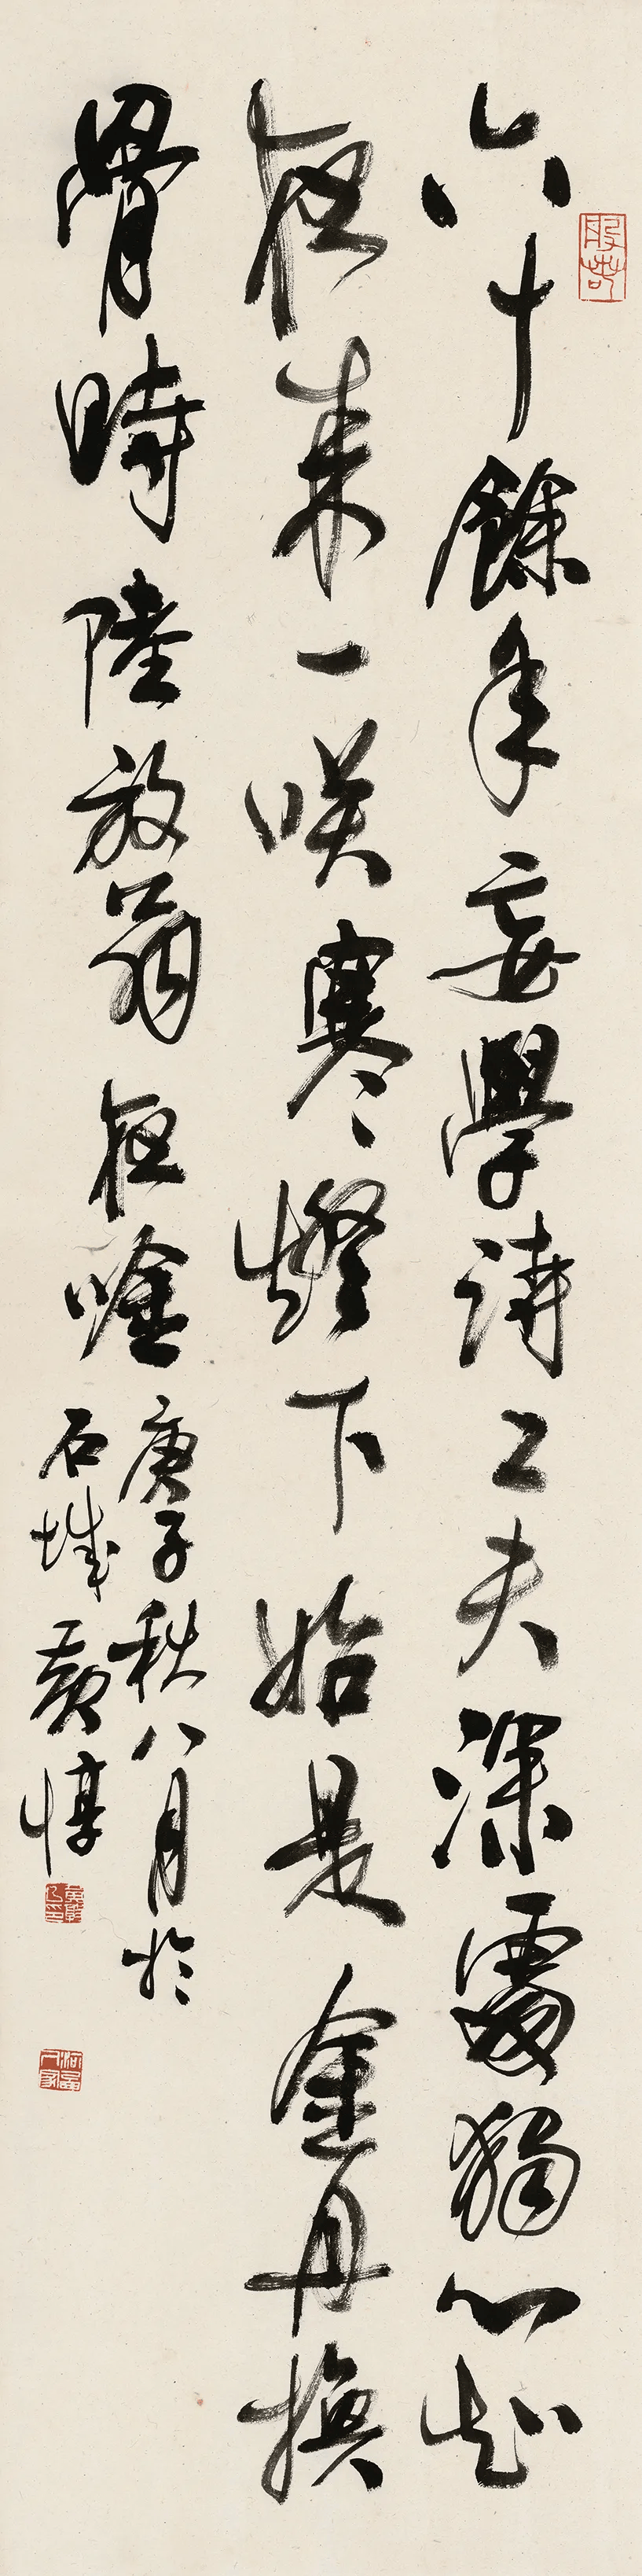 六十餘年妄學詩工夫深處獨心知
夜來一咲寒燈下始是金丹換
骨時陸放翁夜唫
庚子秋八月於
石城黃惇